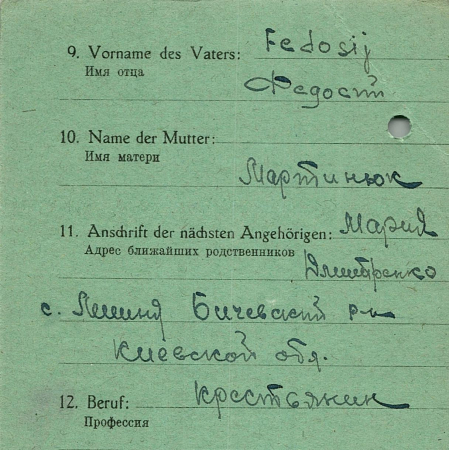 9. Vorname des Vaters: Fedosij
Имя отца
Федосий
10. Name der Mutter:
Имя матери
Мартинюк
11. Anschrift der nächsten Angehörigen: Мария
Адрес ближайших родственников
Дмитренко
с. Бичевский р-н
Киевской обл.
12. Beruf: Крестьянин
Профессия